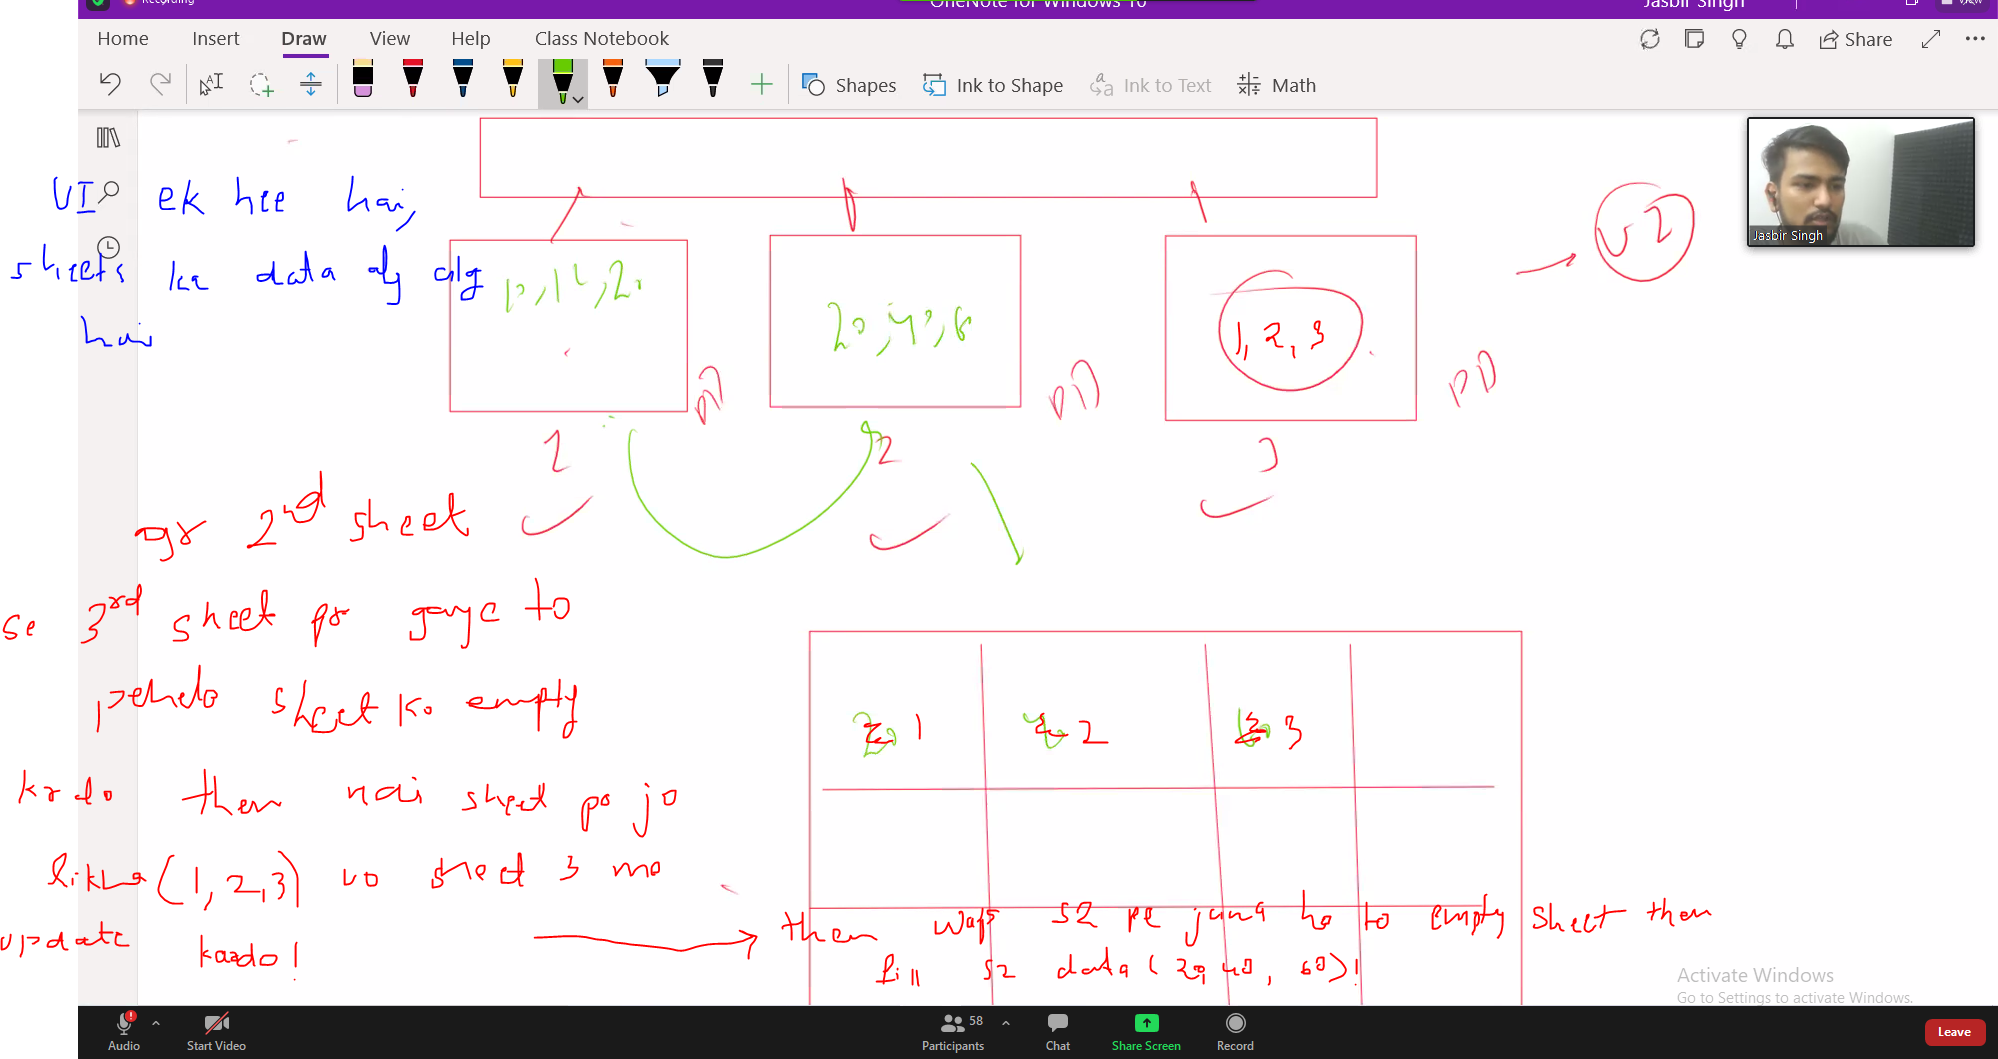 Recording
OneNote for Windows 10
Jasbir Singh
View
Home Insert Draw View Help Class Notebook
Share
Shapes Ink to Shape Ink to Text Math
UI ek hee hai,
sheets ka data alg alg
hai
20, 40, 6
1, 2, 3
v2
Jasbir Singh
PD
1
2
3
agr 2nd sheet
se 3rd sheet pr gaye to
pehele sheet ko empty
krdo then nai sheet pr jo
likha (1, 2, 3) vo sheet 3 me
update kardo!
1 2 3
then waps S2 pe jana ho to empty sheet then
fill S2 data (20, 40, 60)!
Activate Windows
Go to Settings to activate Windows.
Audio Start Video 58 Participants Chat Share Screen Record Leave